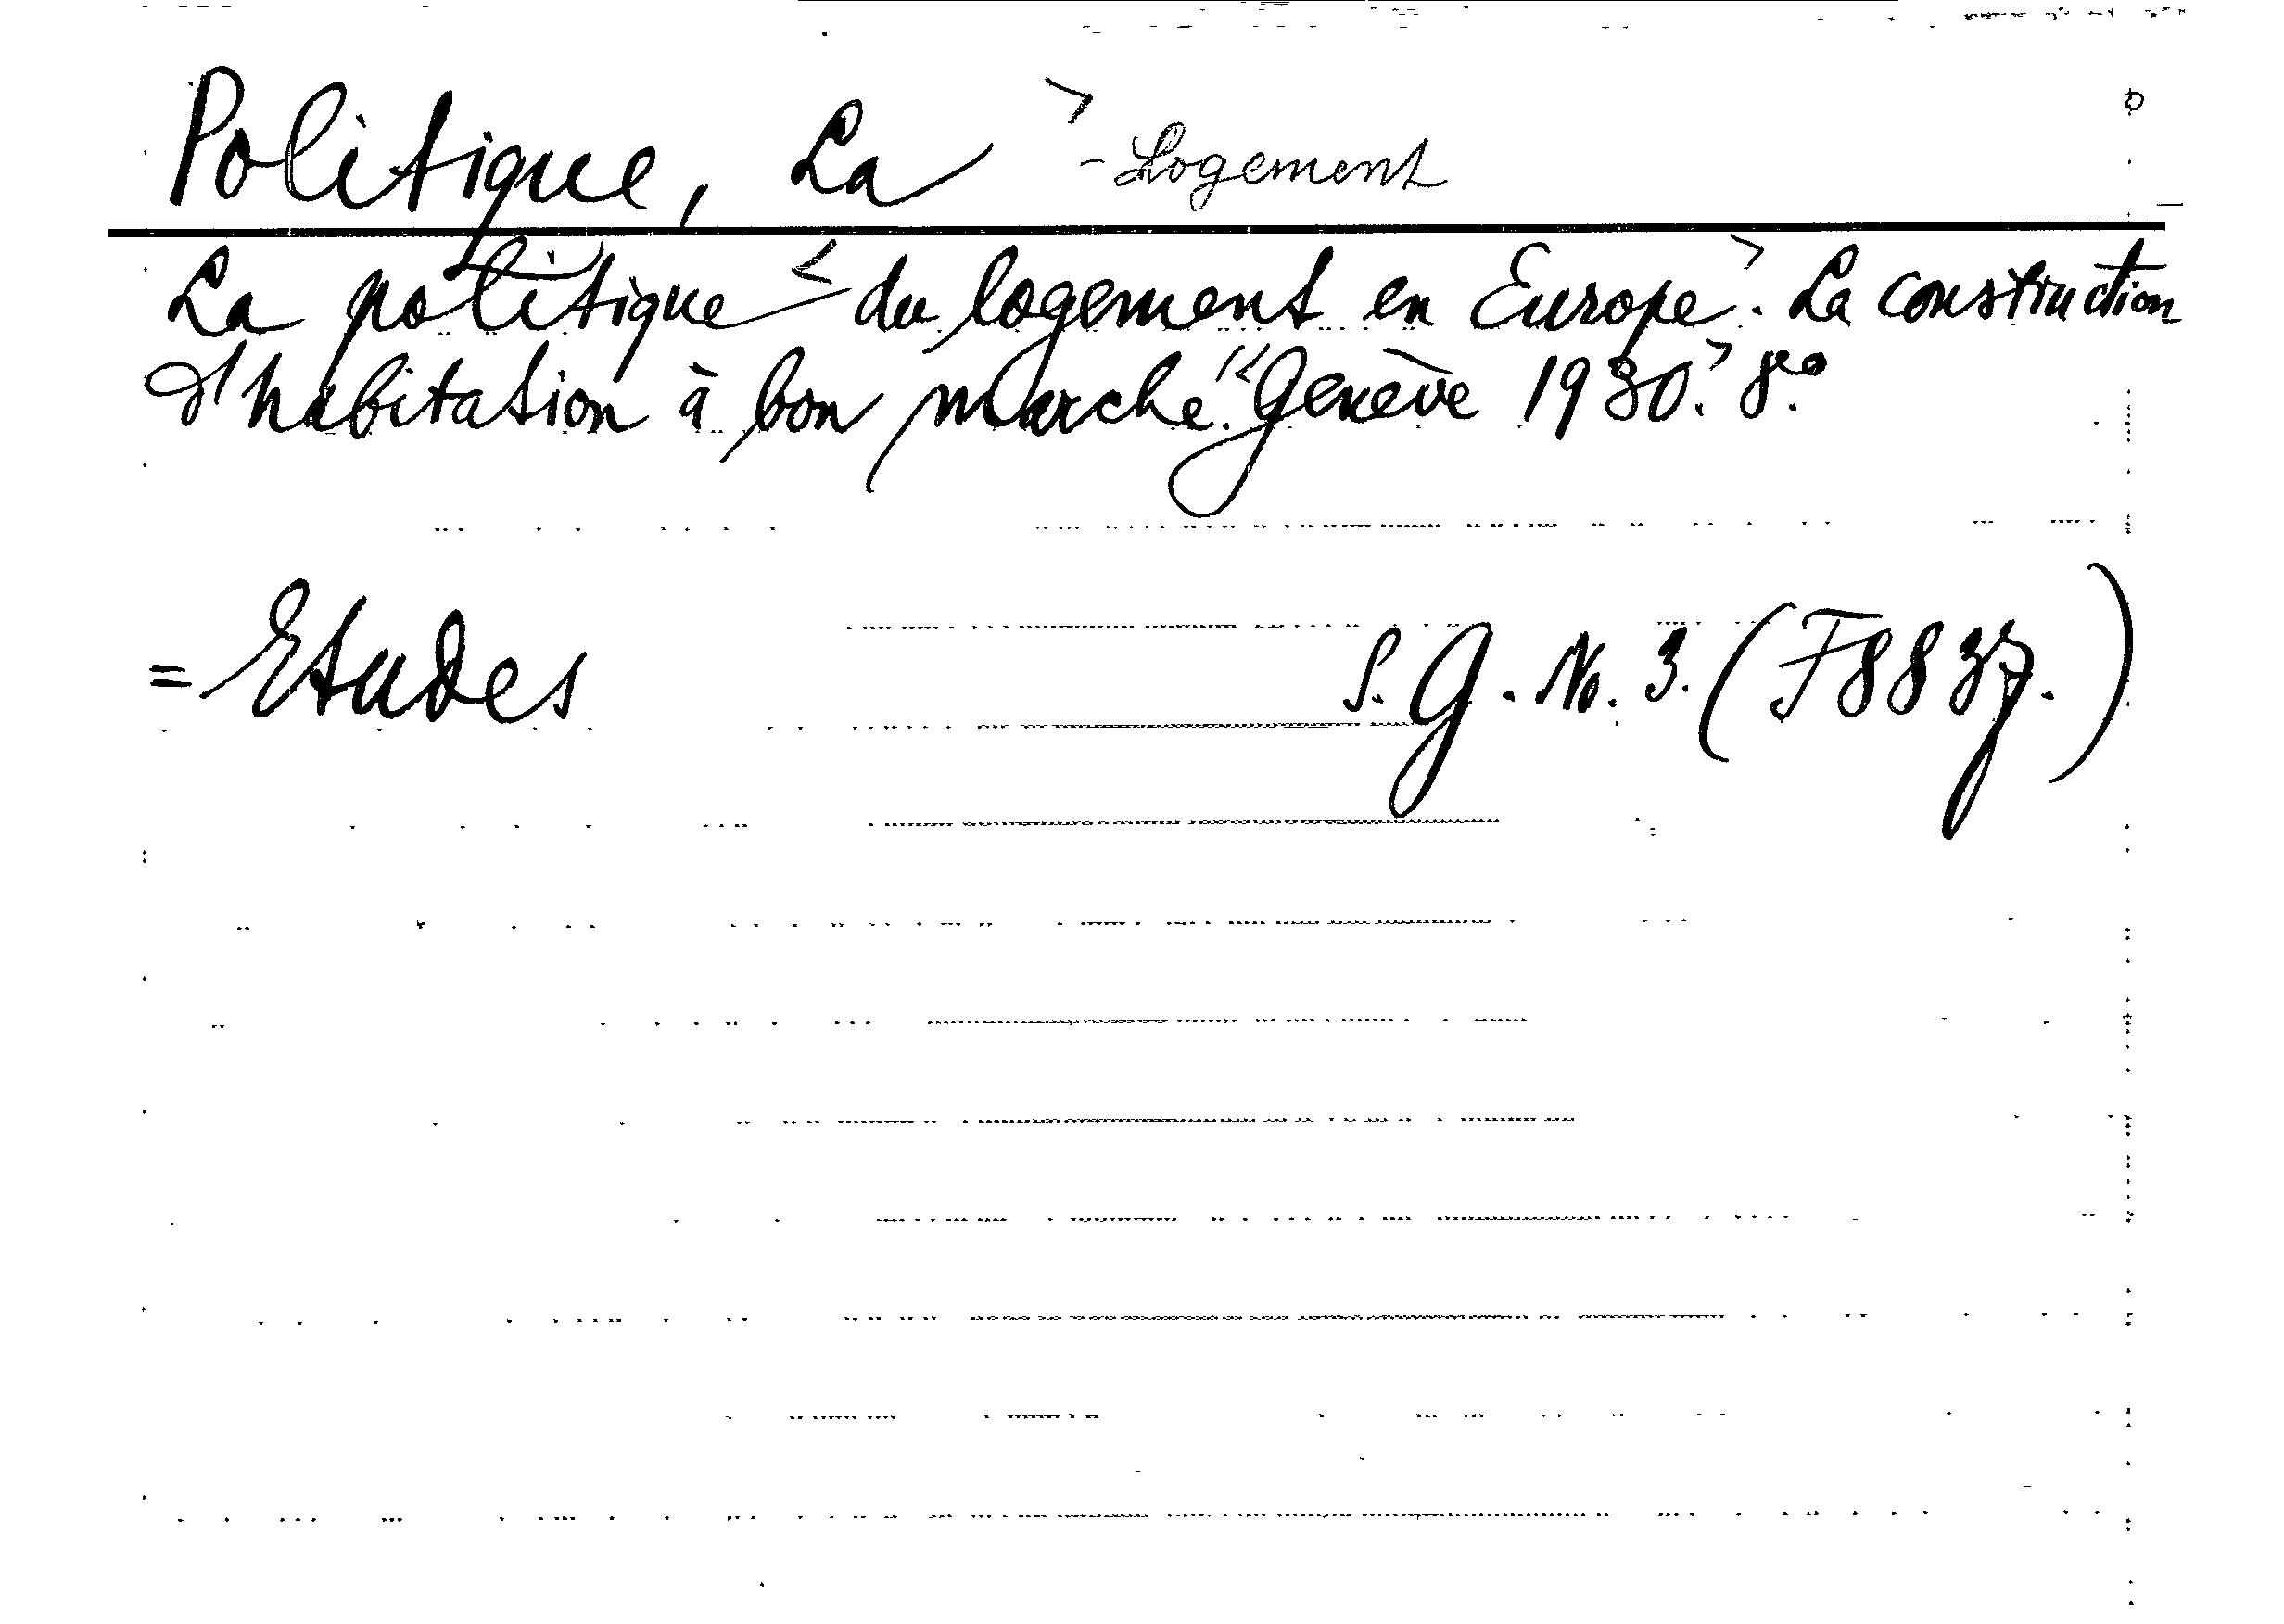 Politique, La - Logement
La politique du logement en Europe. La construction
d'habitation à bon marché. Genève 1930. 8°.
= Etudes S. G. No. 3. (F8837.)